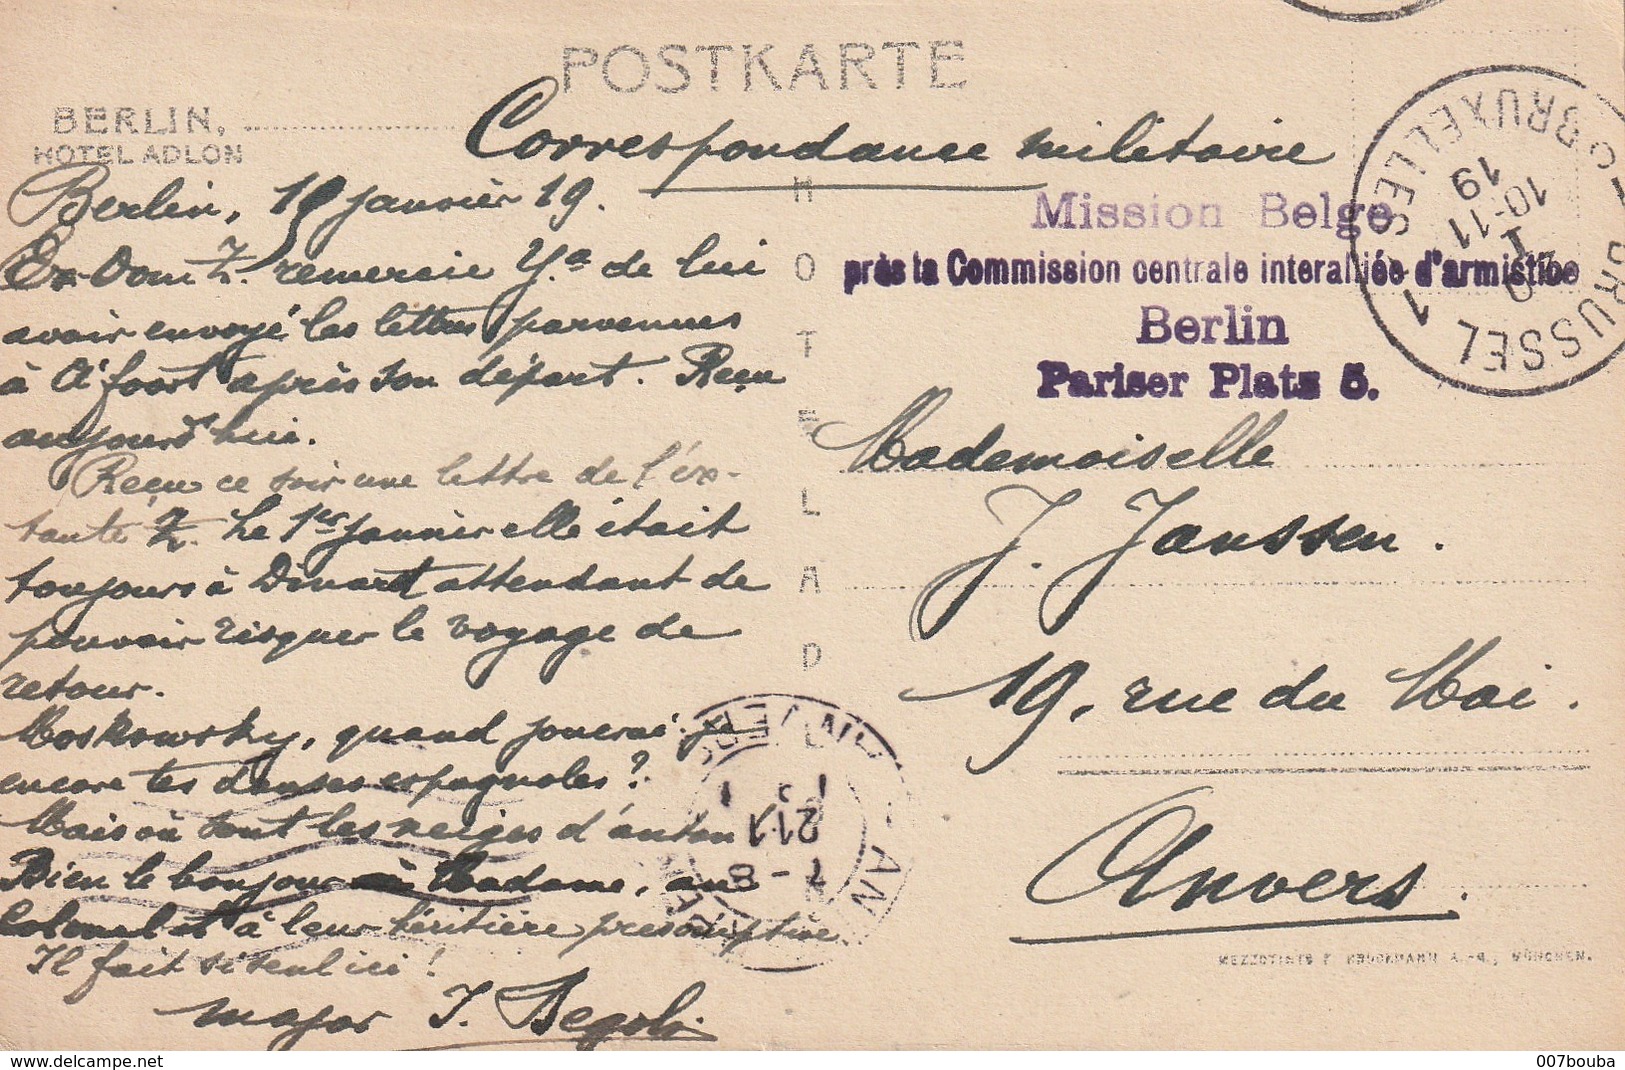 POSTKARTE
BERLIN,
HOTEL ADLON
HOTEL AD
Correspondance militaire
Mission Belge
près la Commission centrale interalliée d'armistice
Berlin
Pariser Plats 5.
BRUXELLES 1
BRUSSEL 1
10-11
19
Berlin, 19 janvier 19.
Ex-Dom Z. remercie Y.a de lui
avoir envoyé les lettres parvenues
à A'foort après son départ. Reçu
aujourd'hui.
Reçu ce soir une lettre de l'ex-
tante Z. Le 1er janvier elle était
toujours à Dinard attendant de
pouvoir risquer le voyage de
retour.
Moskowsky, quand jouerai-je
encore tes danses espagnoles?
Mais où sont les neiges d'antan
Bien le bonjour à Madame, au
Colonel et à leur héritière présomptive
Il fait si seul ici!
major J.
Mademoiselle
J. Janssen.
19, rue du Mai.
Anvers.
MEZZOTINTE F. BRUCKMANN A.-G., MÜNCHEN.
delcampe.net
007bouba